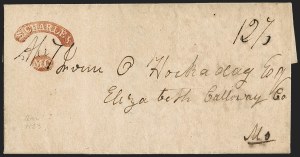 ST. CHARLES
MO.
12½
Irvine O Hockaday Esqr
Elizabeth Calloway Co
Mo